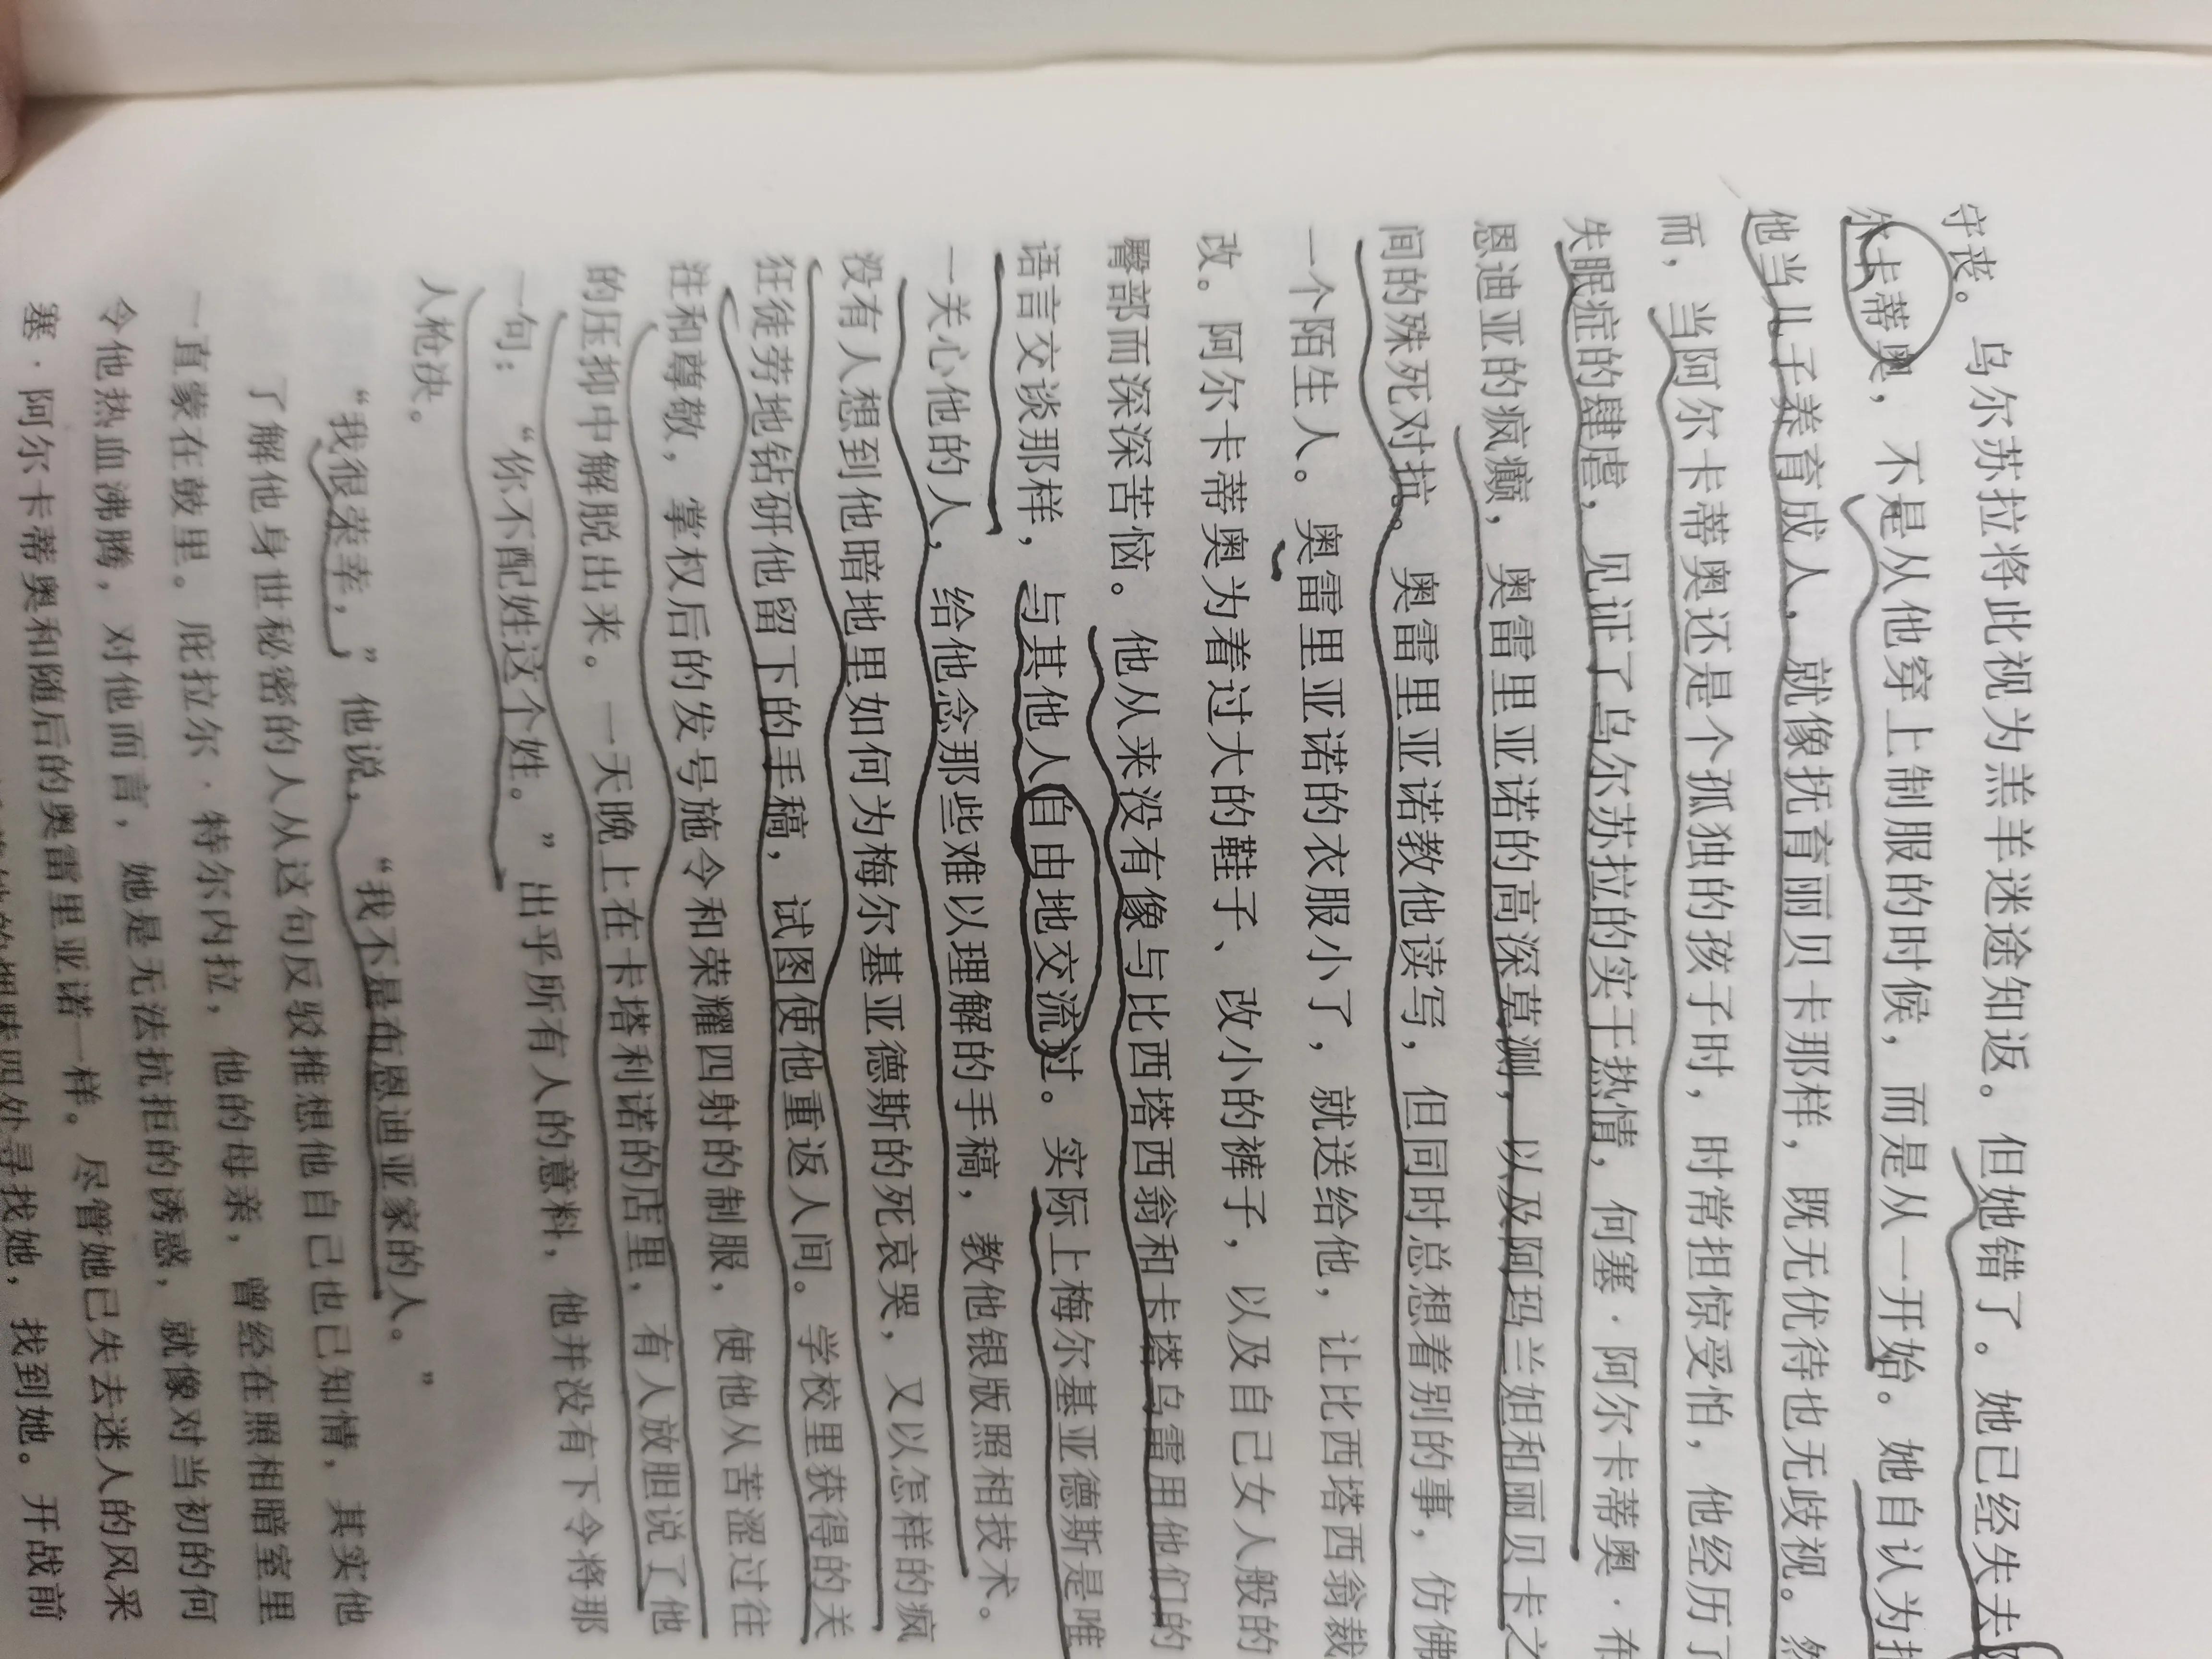 守丧。乌尔苏拉将此视为羔羊迷途知返。但她错了。她已经失去
尔卡蒂奥，不是从他穿上制服的时候，而是从一开始。她自认为
他当儿子养育成人，就像抚育丽贝卡那样，既无优待也无歧视。然
而，当阿尔卡蒂奥还是个孤独的孩子时，时常担惊受怕，他经历了
失眠症的肆虐，见证了乌尔苏拉的实干热情，何塞·阿尔卡蒂奥·布
恩迪亚的疯癫，奥雷里亚诺的高深莫测，以及阿玛兰妲和丽贝卡之
间的殊死对抗。奥雷里亚诺教他读写，但同时总想着别的事，仿佛
一个陌生人。奥雷里亚诺的衣服小了，就送给他，让比西塔西翁裁
改。阿尔卡蒂奥为着过大的鞋子、改小的裤子，以及自己女人般的
臀部而深深苦恼。他从来没有像与比西塔西翁和卡塔乌雷用他们的
语言交谈那样，与其他人自由地交流过。实际上梅尔基亚德斯是唯
一关心他的人，给他念那些难以理解的手稿，教他银版照相技术。
没有人想到他暗地里如何为梅尔基亚德斯的死哀哭，又以怎样的疯
狂徒劳地钻研他留下的手稿，试图使他重返人间。学校里获得的关
注和尊敬，掌权后的发号施令和荣耀四射的制服，使他从苦涩过往
的压抑中解脱出来。一天晚上在卡塔利诺的店里，有人放胆说了他
一句：“你不配姓这个姓。”出乎所有人的意料，他并没有下令将那
人枪决。
“我很荣幸，”他说，“我不是布恩迪亚家的人。”
了解他身世秘密的人从这句反驳推想他自己也已知情，其实他
一直蒙在鼓里。庇拉尔·特尔内拉，他的母亲，曾经在照相暗室里
令他热血沸腾，对他而言，她是无法抗拒的诱惑，就像对当初的何
塞·阿尔卡蒂奥和随后的奥雷里亚诺一样。尽管她已失去迷人的风采
四处寻找她，找到她。开战前